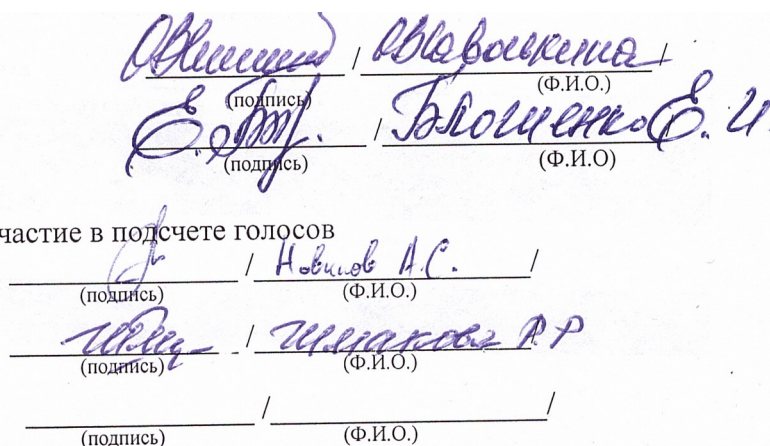 / /
(подпись) (Ф.И.О.)
/ Блошенко Е. И.
(подпись) (Ф.И.О)
частие в подсчете голосов
/ Новиков А.С. /
(подпись) (Ф.И.О.)
/ Р.Р
(подпись) (Ф.И.О.)
/ /
(подпись) (Ф.И.О.)